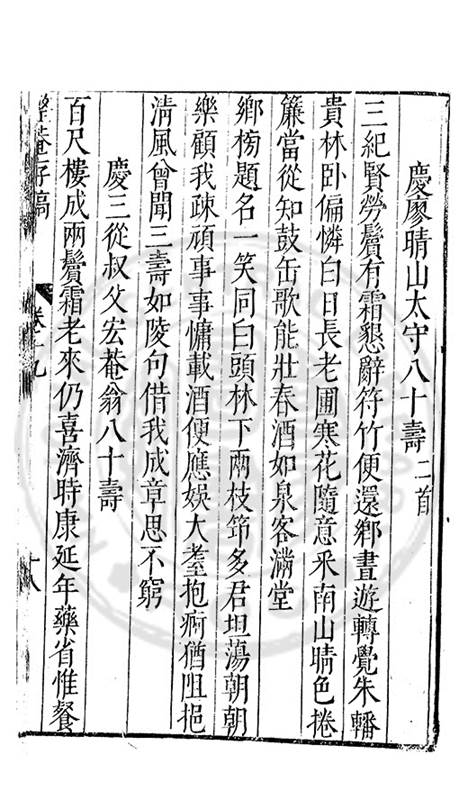 慶廖晴山太守八十壽二首
三紀賢勞鬢有霜懇辭符竹便還鄉晝遊轉覺朱轓
貴林卧偏憐白日長老圃寒花隨意采南山晴色捲
簾當從知鼓缶歌能壯春酒如泉客滿堂
鄉榜題名一笑同白頭林下兩枝筇多君坦蕩朝朝
樂顧我疎頑事事慵載酒便應娛大耋抱痾猶阻挹
清風曾聞三壽如陵句借我成章思不窮
慶三從叔父宏菴翁八十壽
百尺樓成兩鬢霜老來仍喜濟時康延年藥省惟餐
整菴存稿
卷十九
十八